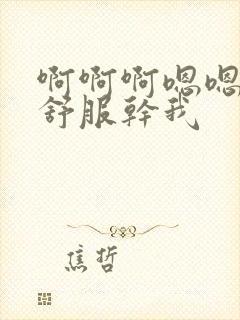 啊啊啊嗯嗯
舒服幹我
焦哲